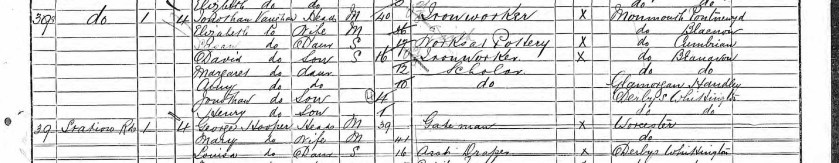 Elizbth do do
39a do 1 4 Jonathan Vaughan Head M 40 Ironworker X Monmouth
Elizabeth do Wife M 36 do Blaenon
do Daur S 17 Works at Pottery X do Cumbrian
David do Son S 16 Ironworker X do Blaenavon
Margaret do daur 12 Scholar do do
Amy do do 10 do Glamorgan
Jonathan do Son 4 Derbys Whittington
Henry do Son 1 do do
39 Station Rd 1 4 George Hooper Head M 39 Gateman X Worcester
Mary do Wife M 41 do
Louisa do Daur S 16 Draper X Derbys Whittington